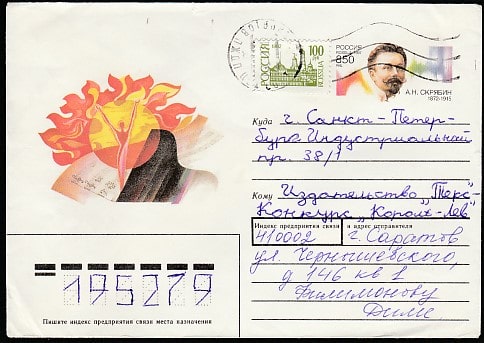 РОССИЯ
100
РОССИЯ
850
А.Н. СКРЯБИН
1872-1915
Куда г. Санкт-Петер-
бург Индустриальный
пр. 38/1
Кому Издательство „Терс"
Конкурс „Король-Лев"
Индекс предприятия связи и адрес отправителя
410002 г. Саратов
ул. Чернышевского,
д 146 кв 1
Филимонову
Диме
195279
Пишите индекс предприятия связи места назначения